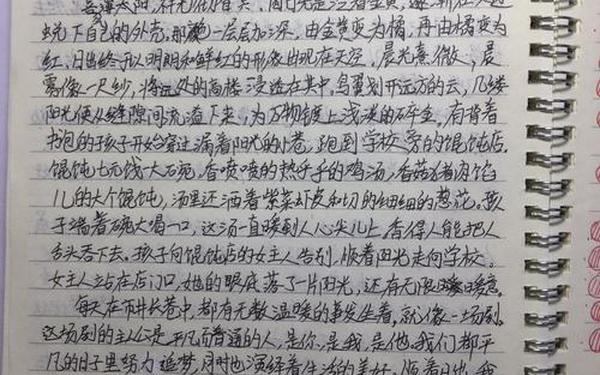 蛻下自己的外壳。那抱一层层加深,由金黄变为橘,再由橘变为
红,日出终于以明朗和鲜红的形像出现在天空。晨光熹微,晨
雾像一尺纱,将远处的高楼浸透在其中。鸟翼划开远方的云,几缕
阳光便从缝隙间流溢下来,为万物镀上浅淡的碎金。有背着
书包的孩子开始穿过漏着阳光的小巷,跑到学校旁的馄饨店。
馄饨七元钱一大石碗,香喷喷的热乎乎的鸡汤,香菇猪肉馅
儿的大个馄饨,汤里还洒着紫菜虾皮和切的细细的葱花。孩
子端着碗大喝一口,这汤一直暖到人心尖儿上。香得人能把人
舌头吞下去。孩子向馄饨店的女主人告别,顺着阳光走向学校。
女主人站在店门口,她的眼底落了一片阳光,还有无限暖意。
每天在小巷中,都有无数温暖的事发生着,就像一场剧。
这场剧的主人公是平凡而普通的人,是你,是我,是他。我们都平
凡的日子里努力追梦,同时也演绎着生活的美好。顺着日出,我